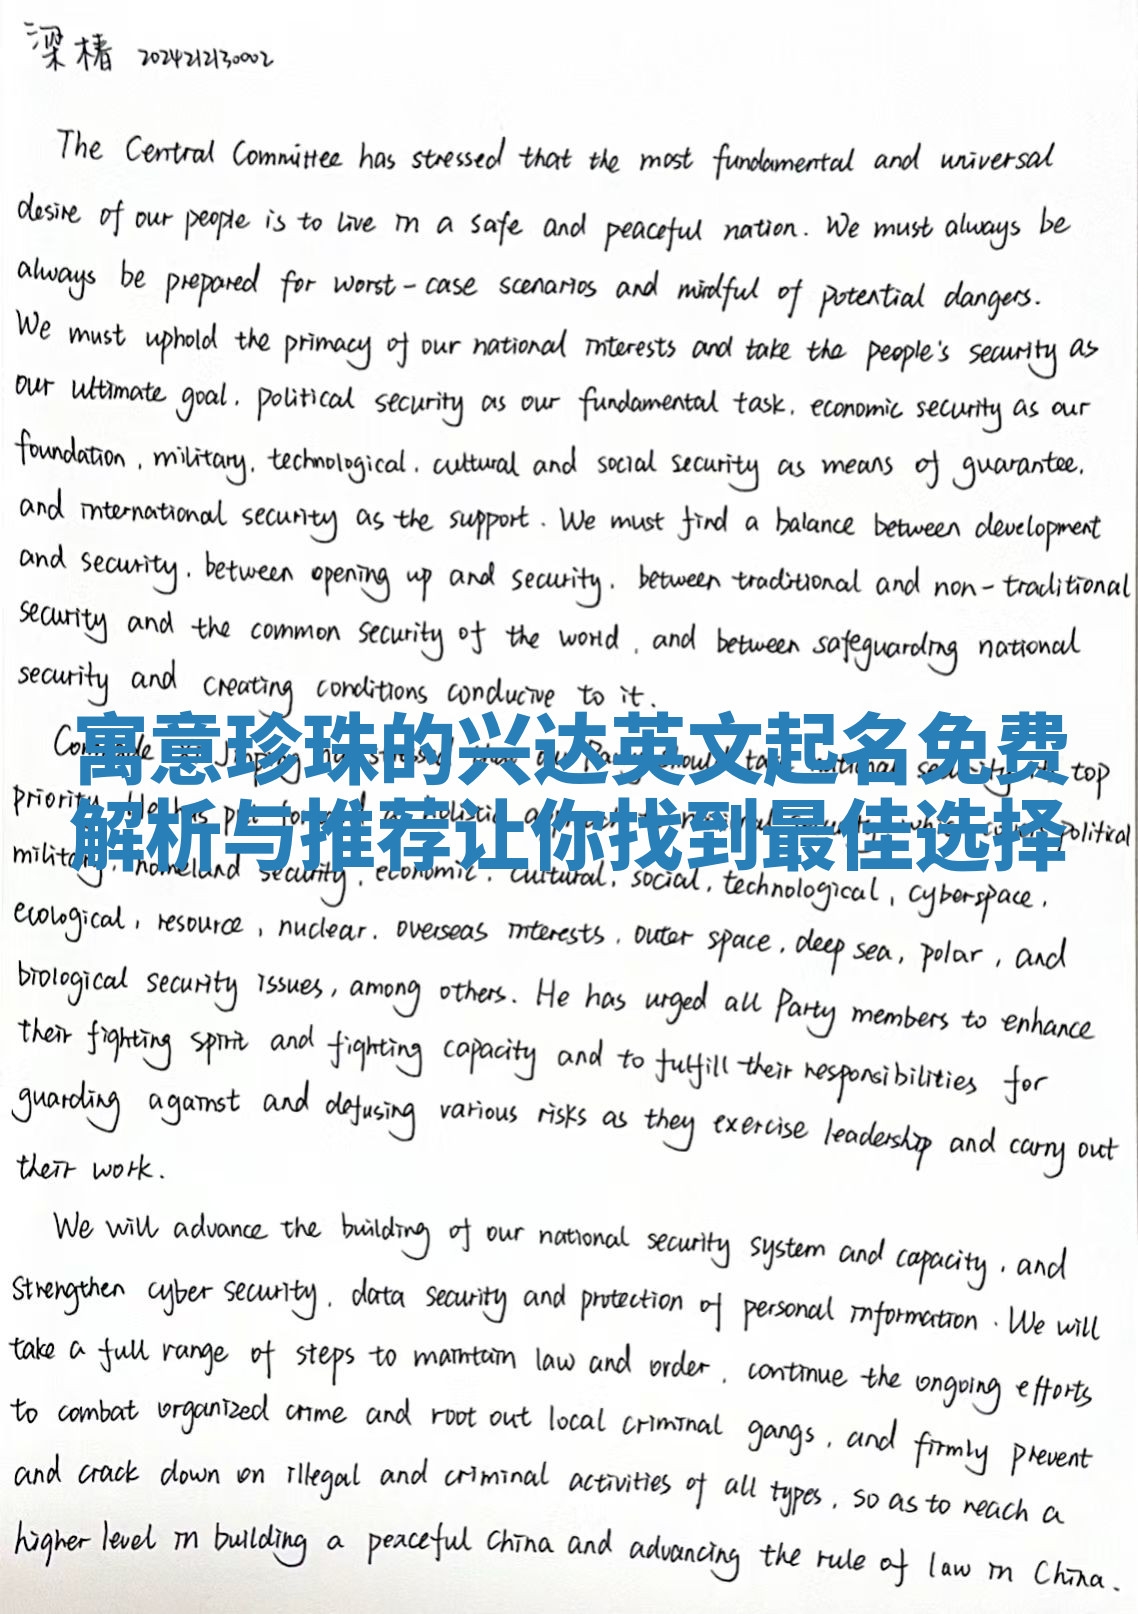 梁椿 2024212130002
The Central Committee has stressed that the most fundamental and universal
desire of our people is to live in a safe and peaceful nation. We must always be
always be prepared for worst-case scenarios and mindful of potential dangers.
We must uphold the primacy of our national interests and take the people's security as
our ultimate goal, political security as our fundamental task, economic security as our
foundation, military, technological, cultural and social security as means of guarantee,
and international security as the support. We must find a balance between development
and security, between opening up and security, between traditional and non-traditional
security and the common security of the world, and between safeguarding national
security and creating conditions conducive to it.
寓意珍珠的兴达英文起名免费
Jinping has stressed that our Party should national security top
解析与推荐让你找到最佳选择
priority. holistic political
military, homeland security, economic, cultural, social, technological, cyberspace,
ecological, resource, nuclear, overseas interests, outer space, deep sea, polar, and
biological security issues, among others. He has urged all Party members to enhance
their fighting spirit and fighting capacity and to fulfill their responsibilities for
guarding against and defusing various risks as they exercise leadership and carry out
their work.
We will advance the building of our national security system and capacity, and
strengthen cyber security, data security and protection of personal information. We will
take a full range of steps to maintain law and order, continue the ongoing efforts
to combat organized crime and root out local criminal gangs, and firmly prevent
and crack down on illegal and criminal activities of all types, so as to reach a
higher level in building a peaceful China and advancing the rule of law in China.